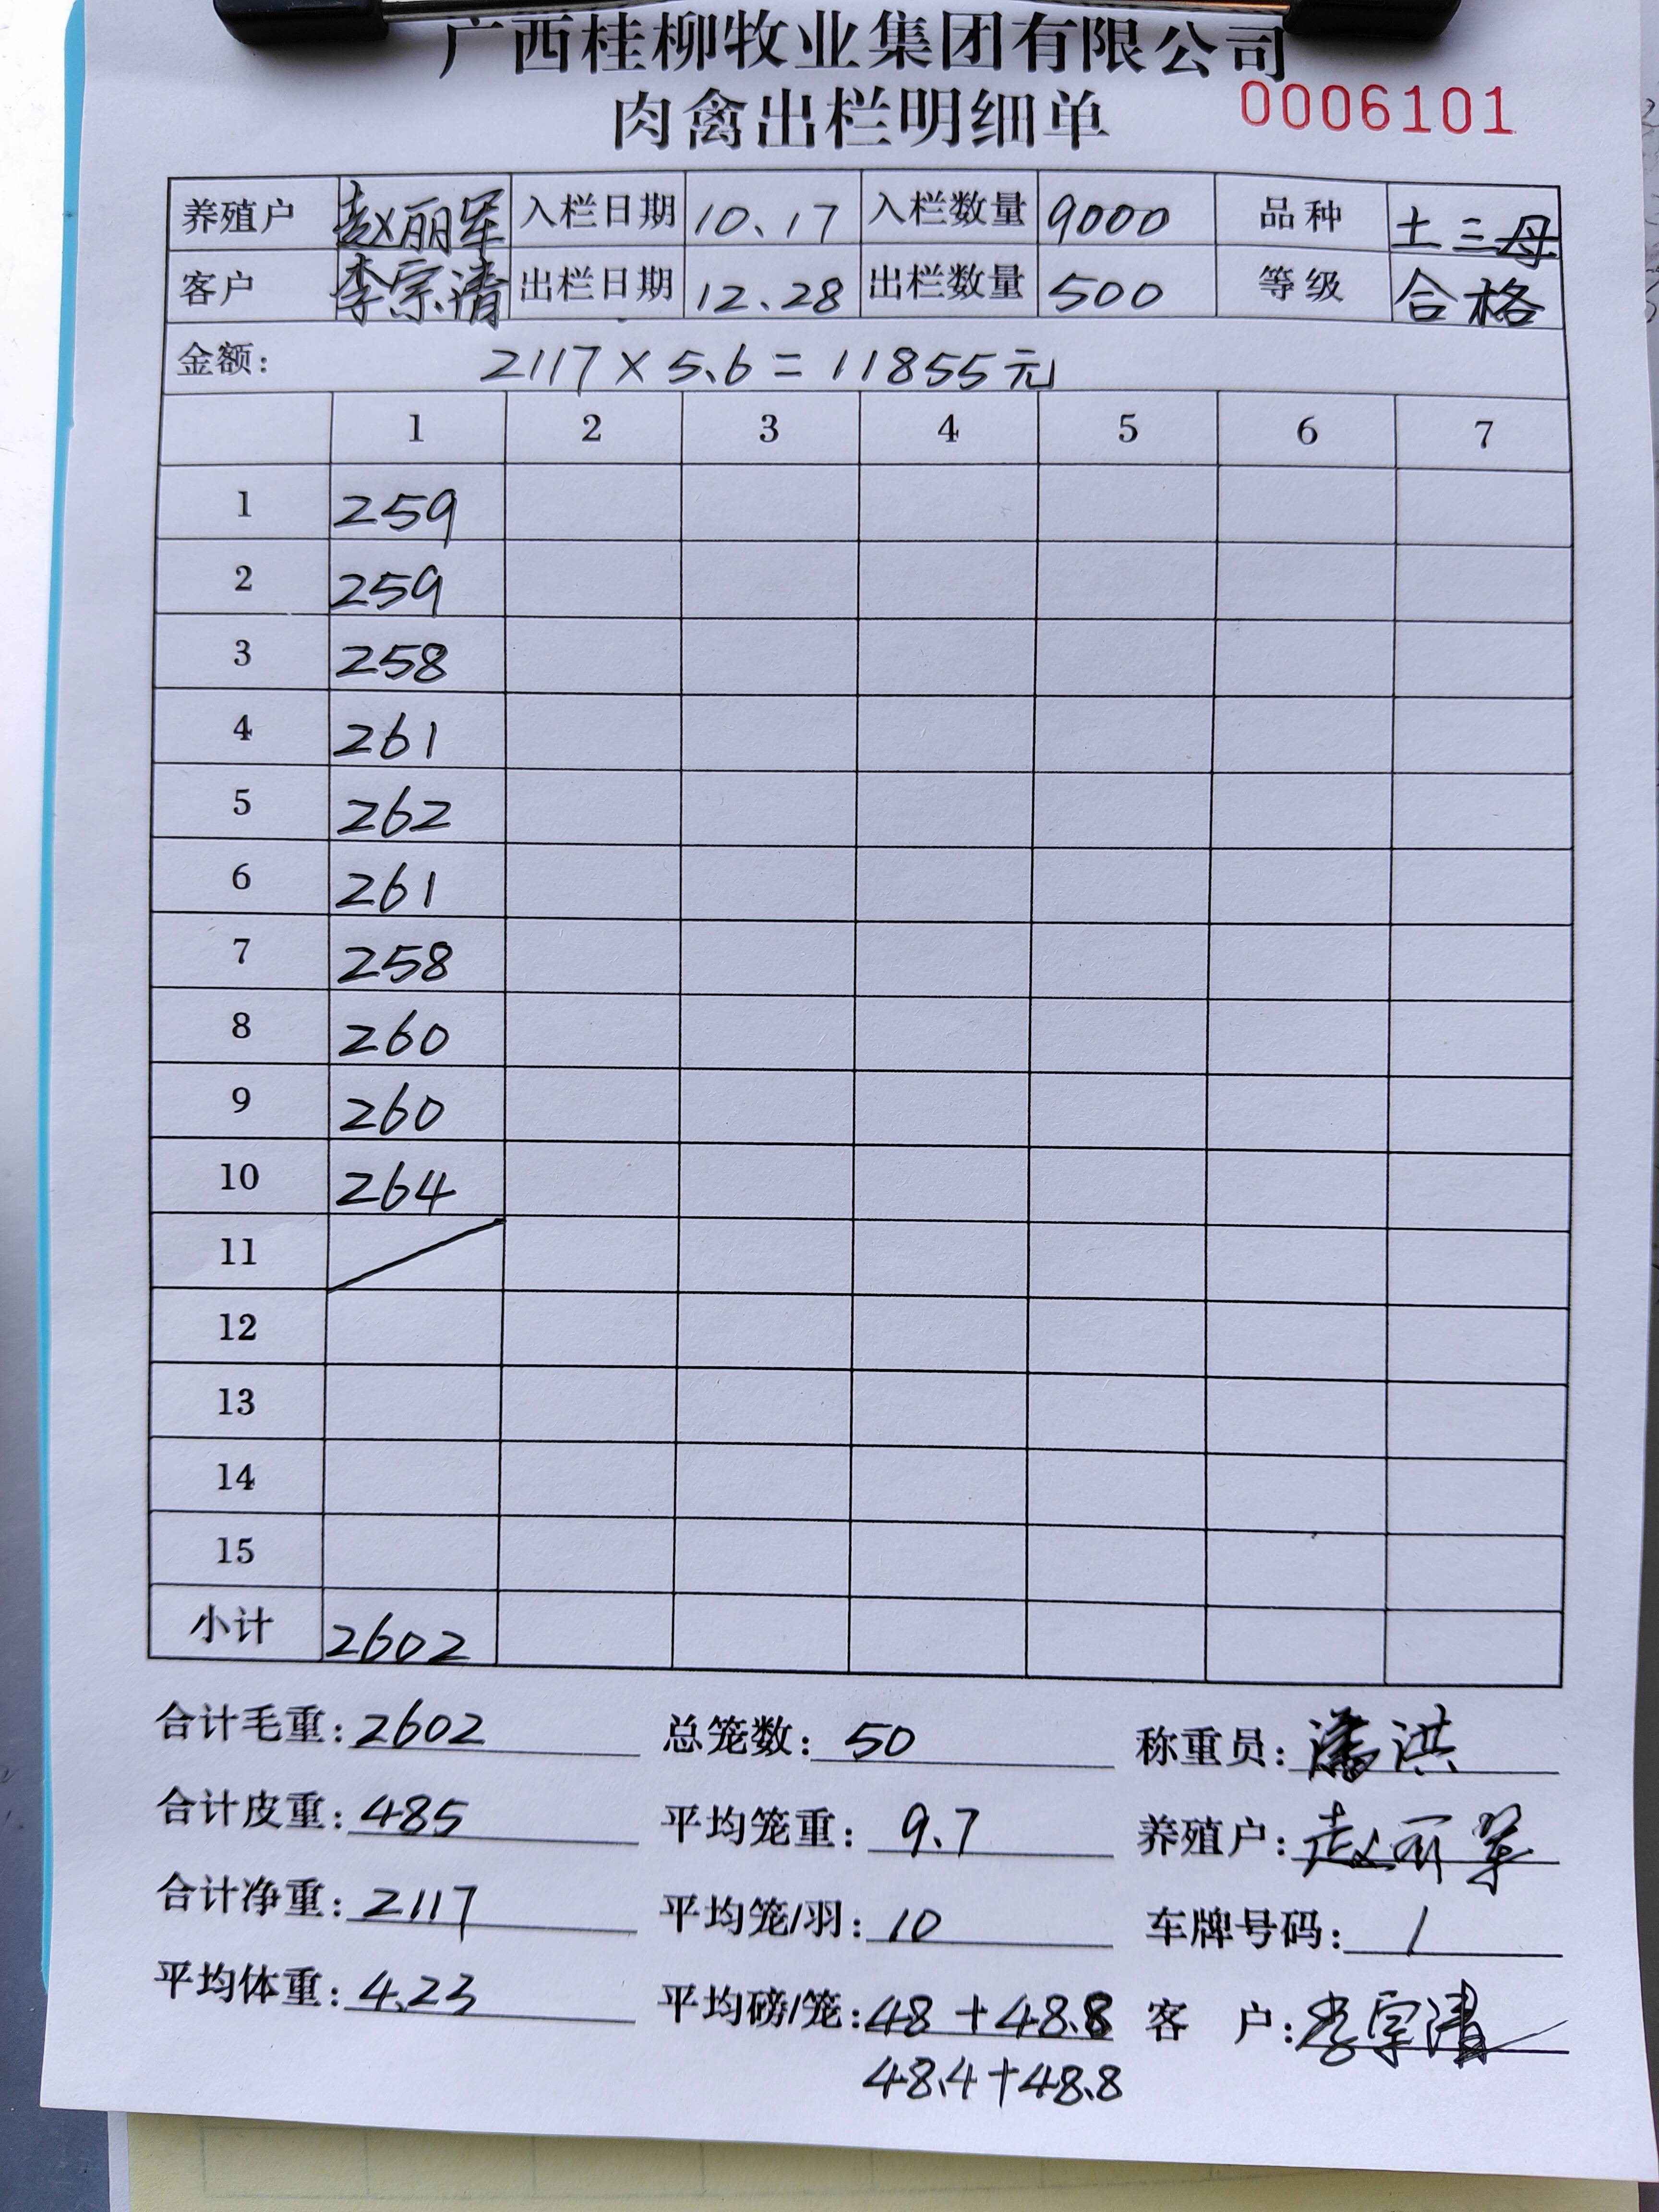 广西桂柳牧业集团有限公司
肉禽出栏明细单 0006101
养殖户 赵丽军 入栏日期 10.17 入栏数量 9000 品种 土三母
客户 李宗清 出栏日期 12.28 出栏数量 500 等级 合格
金额: 2117×5.6=11855元
1 2 3 4 5 6 7
1 259
2 259
3 258
4 261
5 262
6 261
7 258
8 260
9 260
10 264
11
12
13
14
15
小计 2602
合计毛重: 2602 总笼数: 50 称重员: 潘洪
合计皮重: 485 平均笼重: 9.7 养殖户: 赵丽军
合计净重: 2117 平均笼/羽: 10 车牌号码: /
平均体重: 4.23 平均磅/笼: 48+48.8 客 户: 李宗清
48.4+48.8